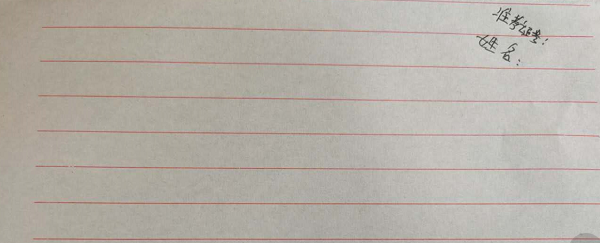 准考证号：
姓名：